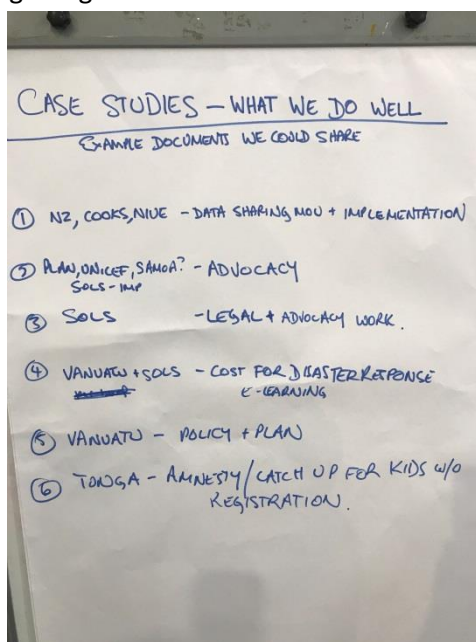 CASE STUDIES – WHAT WE DO WELL
EXAMPLE DOCUMENTS WE COULD SHARE
① NZ, COOKS, NIUE – DATA SHARING MOU + IMPLEMENTATION
② PLAN, UNICEF, SAMOA? – ADVOCACY
SOLS-IMP
③ SOLS – LEGAL + ADVOCACY WORK.
④ VANUATU + SOLS – COST FOR DISASTER RESPONSE
E-LEARNING
⑤ VANUATU – POLICY + PLAN
⑥ TONGA – AMNESTY/CATCH UP FOR KIDS W/O
REGISTRATION.